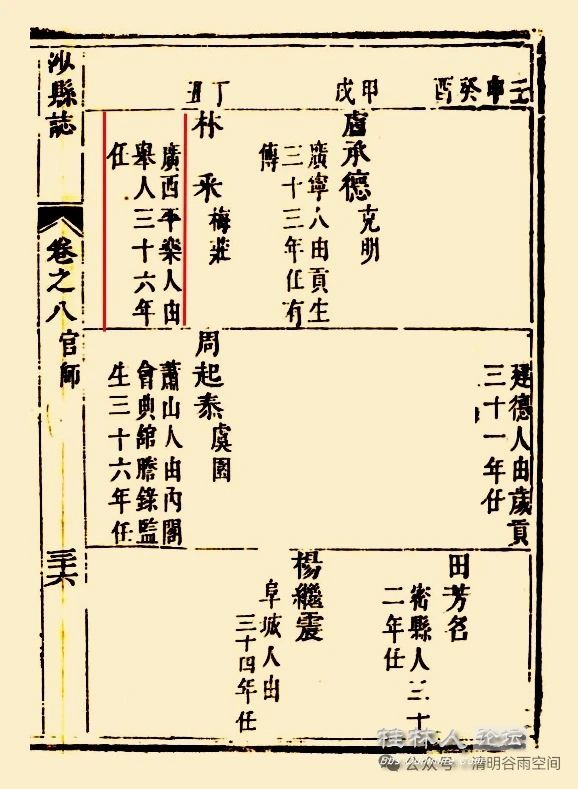 壬申癸酉
甲戌
丁丑
盧承德克明
廣寧人由貢生
三十三年任有
傳
林采梅莊
廣西平樂人由
舉人三十六年
任
建德人由歲貢
三十一年任
周起泰虞園
蕭山人由內閣
會典館謄錄監
生三十六年任
田芳名
衛縣人三十
二年任
楊繼震
阜城人由
三十四年任
沙縣誌
卷之八官師
三十六
桂林人论坛
公众号·清明谷雨空间